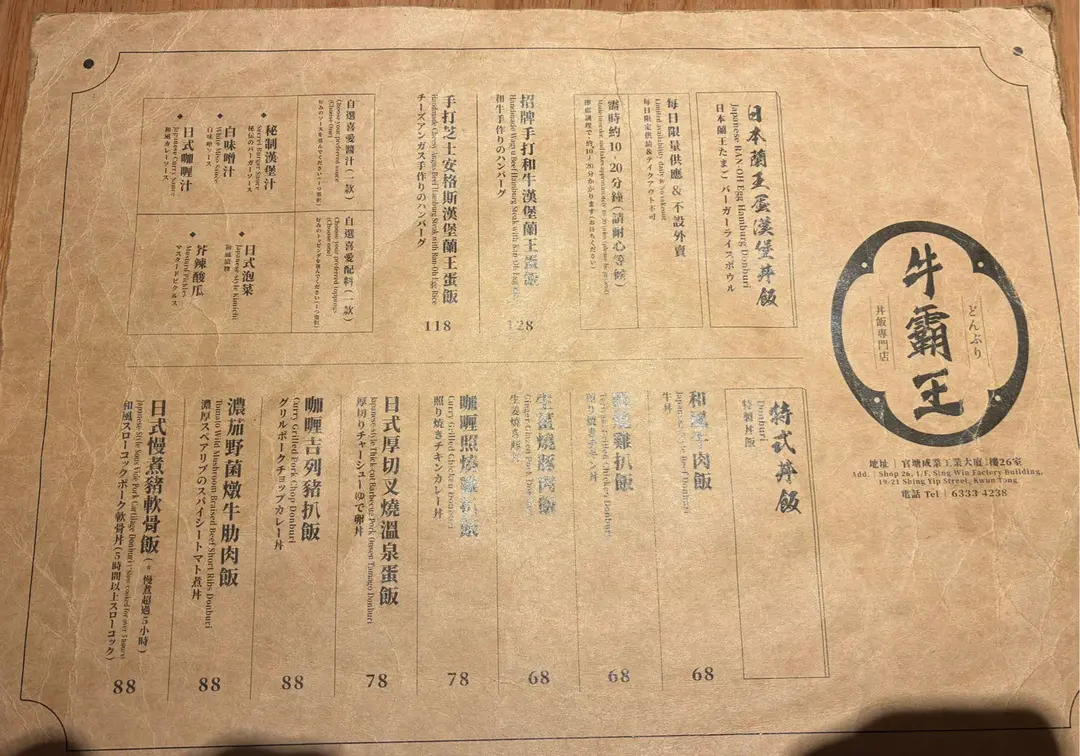 牛霸王
どんぶり
丼飯專門店
地址｜官塘成業工業大廈1樓26室
Add. | Shop 26, 1/F, Sing Win Factory Building,
19-21 Shing Yip Street, Kwun Tong
電話 Tel | 6333 4238
日本蘭王蛋漢堡丼飯
Japanese RAN-OH Egg Hamburg Donburi
日本蘭王たまご バーガーライスボウル
每日限量供應 & 不設外賣
Limited availability daily & No takeout
毎日限定供給&テイクアウト不可
需時約10-20分鐘(請耐心等候)
招牌手打和牛漢堡蘭王蛋飯
Handmade Wagyu Beef Hamburg Steak with Ran-Oh Egg Rice
和牛手作りのハンバーグ
128
手打芝士安格斯漢堡蘭王蛋飯
Handmade Cheesy Angus Beef Hamburg Steak with Ran-Oh Egg Rice
チーズアンガス手作りのハンバーグ
118
自選喜愛醬汁(一款)
Choose your preferred sauce
(Choose one)
秘制漢堡汁
Secret Burger Sauce
秘伝のバーガーソース
白味噌汁
White Miso Sauce
白味噌ソース
日式咖喱汁
Japanese Curry Sauce
和風カレーソース
自選喜愛配料(一款)
Choose your preferred toppings
(Choose one)
日式泡菜
Japanese-style Kimchi
和風漬物
芥辣酸瓜
Mustard Pickles
マスタードピクルス
特式丼飯
Donburi
特製丼飯
和風牛肉飯
Japanese Style Beef Donburi
牛丼
68
照燒雞扒飯
Teriyaki Grilled Chicken Donburi
照り焼きチキン丼
68
生薑燒豚肉飯
Ginger Glazed Pork Donburi
生姜焼き豚丼
68
咖喱照燒雞扒飯
Curry Grilled Chicken Donburi
照り焼きチキンカレー丼
78
日式厚切叉燒溫泉蛋飯
Japanese-style Thick-cut Barbecue Pork Onsen Tamago Donburi
厚切りチャーシューゆで卵丼
78
咖喱吉列豬扒飯
Curry Grilled Pork Chop Donburi
グリルポークチョップカレー丼
88
濃茄野菌燉牛肋肉飯
Tomato Wild Mushroom Braised Beef Short Ribs Donburi
濃厚スペアリブのスパイシートマト煮丼
88
日式慢煮豬軟骨飯(* 慢煮超過5小時)
Japanese-Style Sous Vide Pork Cartilage Donburi (*Slow cooked for over 5 hours)
和風スローコックポーク軟骨丼(5時間以上スローコック)
88